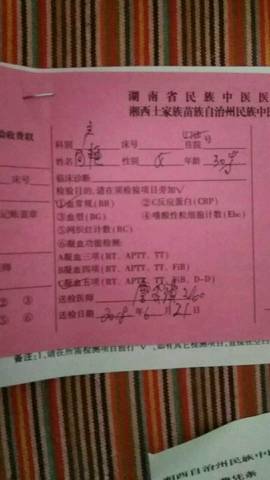 湖南省民族中医医
湘西土家族苗族自治州民族中
验收费联
科别 产 床号 住院 号
姓名 性别 女 年龄 30岁
床号
临床诊断
检验目的:请在所检验项目旁加√
①血常规(BR) ②C反应蛋白(CRP)
③血型(BG) ④嗜酸性粒细胞计数(Eòc)
记账盖章
⑤网织红计数(RC)
⑥凝血功能检测:
A凝血三项(RT、APTT、TT)
医师
B凝血四项(RT、APTT、TT、FiB)
② ③
凝血五项(RT、APTT、TT、FiB、D-D)
送检医师
⑤ ⑥
送检日期 2018 年 6 月 21 日
备注:1、请在所需检测项目前打"√"
湘西自治州民族中